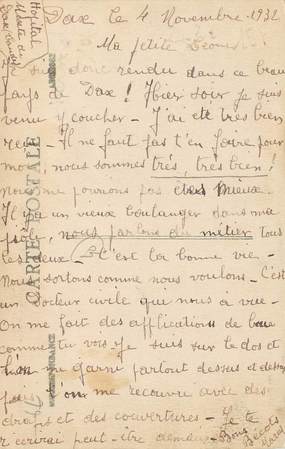 Hopital
Dax le 4 Novembre 1932
Ma petite
suis donc rendu dans ce beau
pays de Dax! Hier soir je suis
venu y coucher - J'ai été très bien
reçu - Il ne faut pas t'en faire pour
moi, nous sommes très, très bien!
Nous ne pourrions pas être mieux.
Il y a un vieux boulanger dans ma
nous parlons du métier tous
les deux - C'est la bonne vie -
Nous sortons comme nous voulons - C'est
un docteur civile qui nous a vue -
On me fait des applications de boue
comme tu vois je suis sur le dos et
l'on me garni partout dessus et dessous
puis l'on me recouvre avec des
draps et des couvertures - Je te
r'écrirai peut-être demain - Bons
Bécots
CARTE POSTALE
CORRESPONDANCE